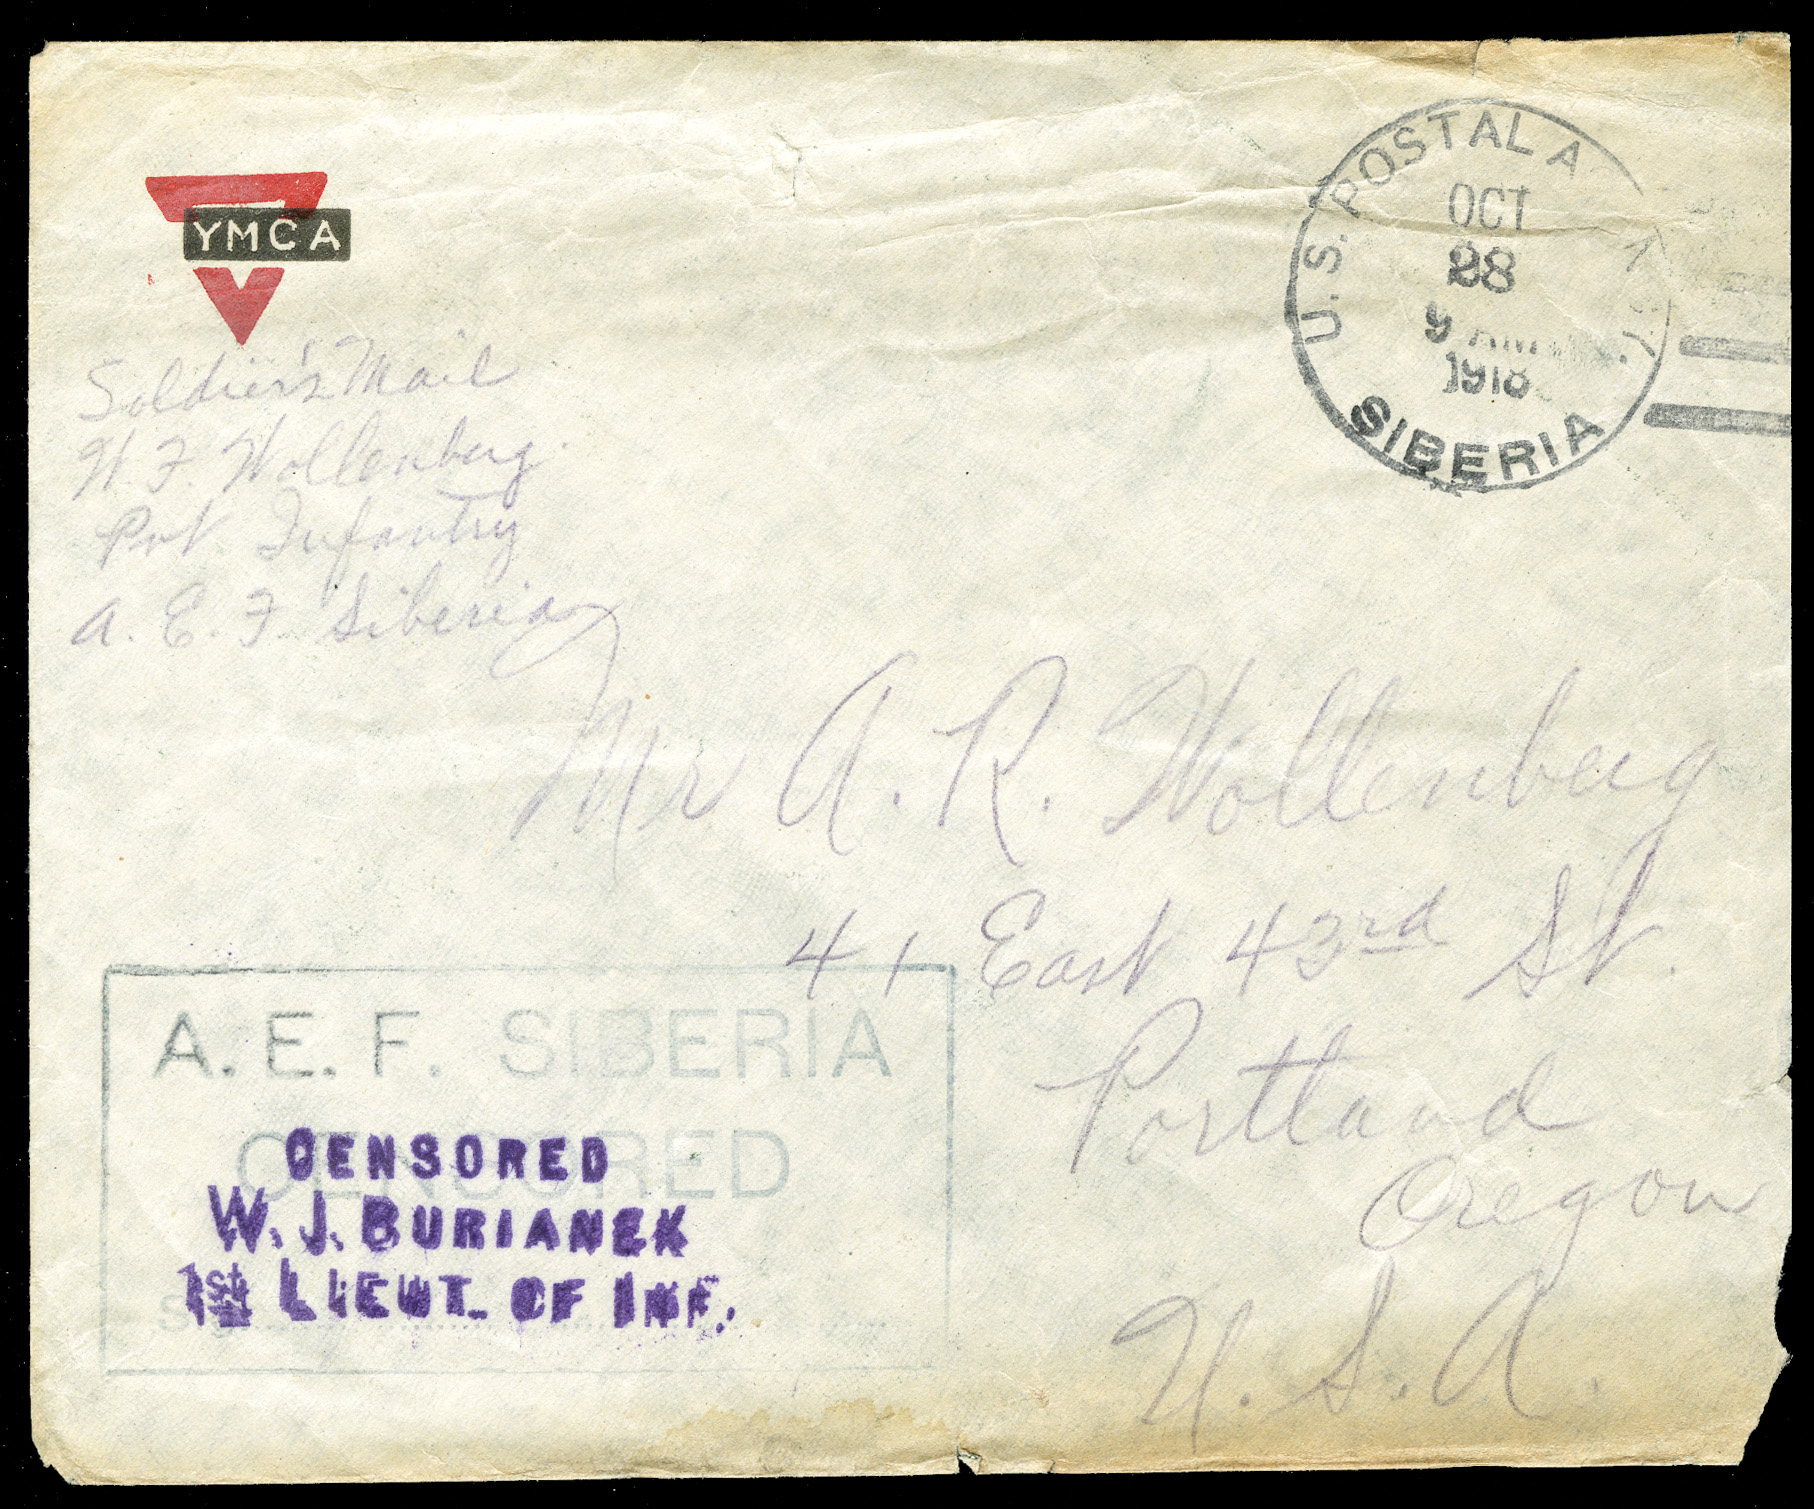 YMCA
Soldier's Mail
H. F. Wollenberg.
Pvt. Infantry
A. E. F Siberia
U.S. POSTAL A
OCT
28
9 AM
1918
SIBERIA
Mr A. R. Wollenberg
41 East 43rd St.
Portland
Oregon
U. S. A.
A. E. F. SIBERIA
CENSORED
CENSORED
W. J. BURIANEK
1st LIEUT. OF INF.